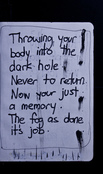 Throwing your
body into the
dark hole
Never to return.
Now your just
a memory.
The fog as done
it's job.